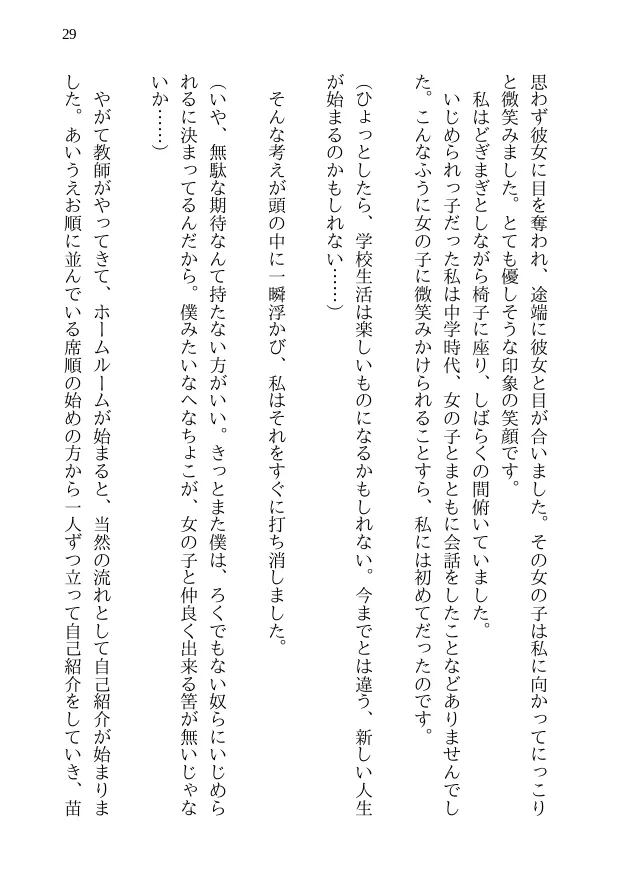 29
思わず彼女に目を奪われ、途端に彼女と目が合いました。その女の子は私に向かってにっこり
と微笑みました。とても優しそうな印象の笑顔です。
私はどぎまぎとしながら椅子に座り、しばらくの間俯いていました。
いじめられっ子だった私は中学時代、女の子とまともに会話をしたことなどありませんでし
た。こんなふうに女の子に微笑みかけられることすら、私には初めてだったのです。
（ひょっとしたら、学校生活は楽しいものになるかもしれない。今までとは違う、新しい人生
が始まるのかもしれない……）
そんな考えが頭の中に一瞬浮かび、私はそれをすぐに打ち消しました。
（いや、無駄な期待なんて持たない方がいい。きっとまた僕は、ろくでもない奴らにいじめら
れるに決まってるんだから。僕みたいなへなちょこが、女の子と仲良く出来る筈が無いじゃな
いか……）
やがて教師がやってきて、ホームルームが始まると、当然の流れとして自己紹介が始まりま
した。あいうえお順に並んでいる席順の始めの方から一人ずつ立って自己紹介をしていき、苗